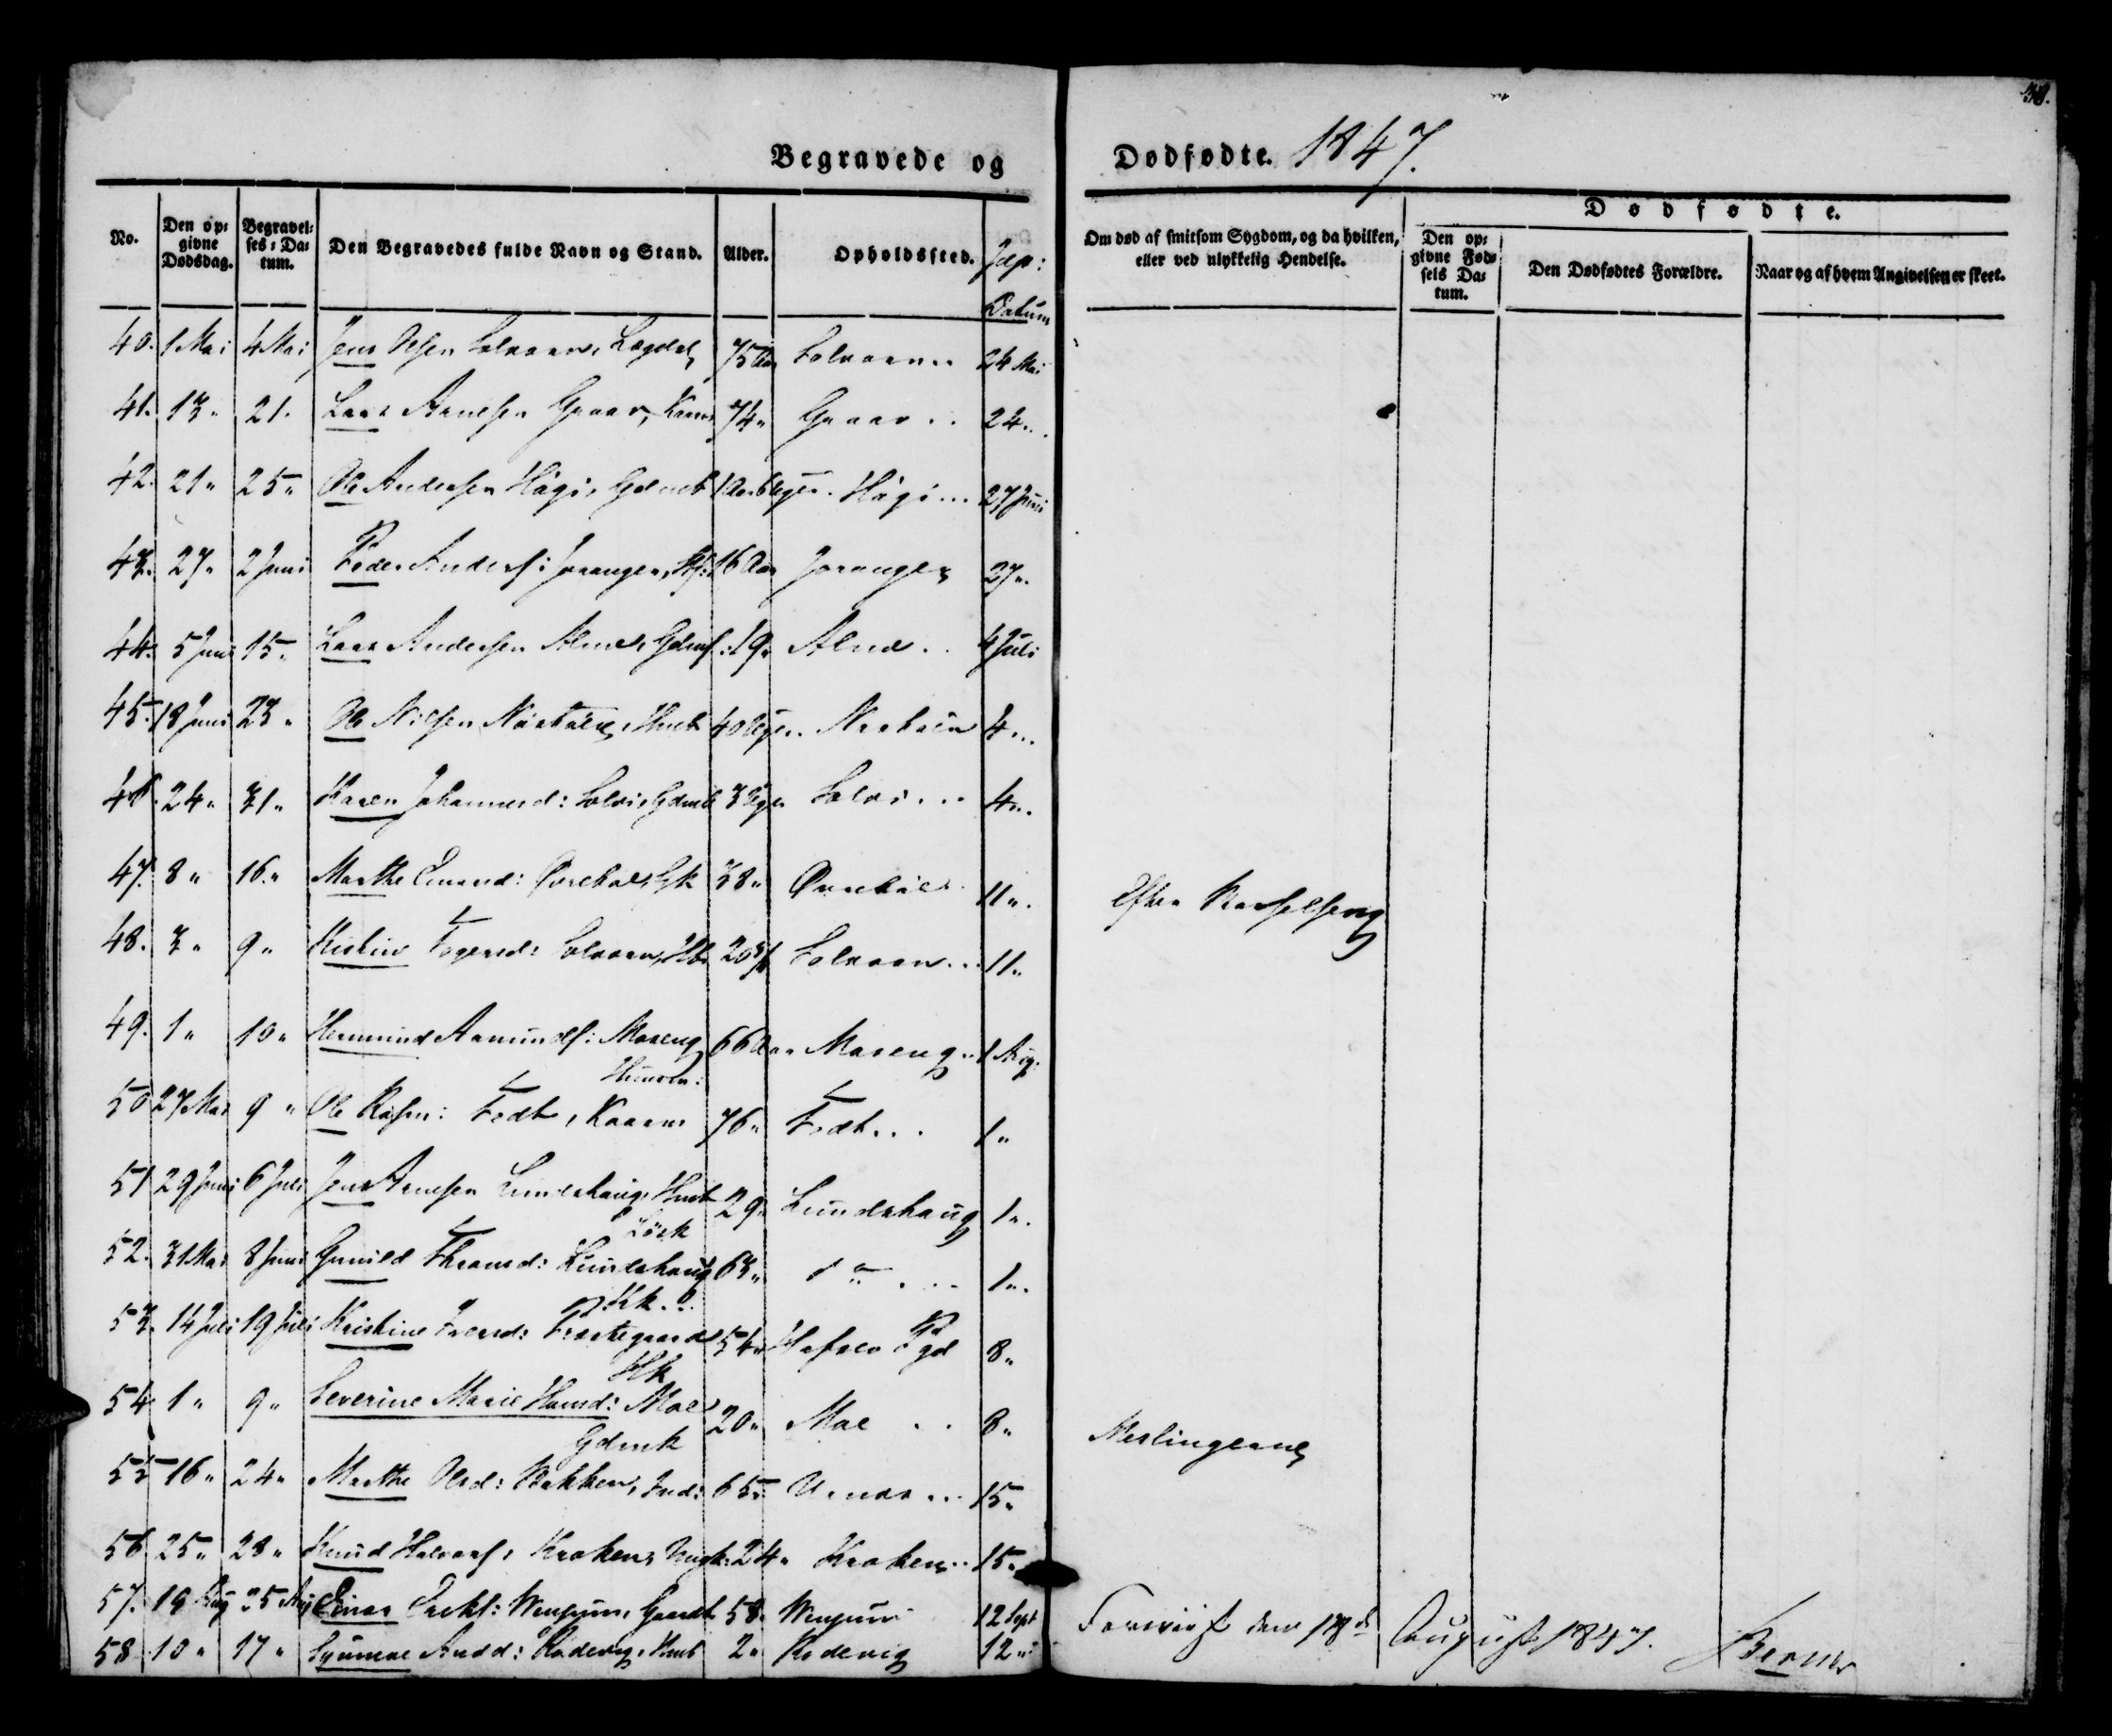 38.
Begravede og Dødfødte. 1847.
No. Den op- givne Dødsdag. Begravel- ses-Da- tum. Den Begravedes fulde Navn og Stand. Alder. Opholdssted. Jdp: Datum
Om død af smitsom Sygdom, og da hvilken, eller ved ulykkelig Hendelse. Dødfødte. Den op- givne Fød- sels Da- tum. Den Dødfødtes Forældre. Naar og af hvem Angivelsen er skeet.
40. 1 Mai 4 Mai Jens Olsen Solvorn, Lægdsl 75 Aar Solvorn .. 24 Mai
41. 13 " 21 " Lars Arnesen Graav, Kaarm 74 " Graav .. 24 ..
42. 21 " 25 " Ole Andersen Høgi, Gdmb 1 Aar 6 Uger. Høgi ... 27 Juni
43. 27 " 2 Juni Peder Anders: Joranger, 16 Aar Joranger 27 ".
44. 5 Juni 15 " Lars Andersen Alme, Gdms: 19 " Alme .. 4 Juli
45. 18 Juni 23 " Ole Nilsen, Hmb 40 Uger. 4 ...
46. 24 " 31 " Karen Johannesd: Solvi, Gdmb 3 Uger Solvi ... 4 ..
47. 8 " 16 " Marthe Einersd: Qvrebøe, Gk 38 " 11 ".
Efter Barselseng
48. 3 " 9 " Kristine Togersd: Solvorn, 20 Solvorn ... 11 "
49. 1 " 10 " Hermund Amunds: Moreng 66 Aar Moreng .. 1 Aug:
Huusm:
50 27 Mai 9 " Ole Rasm: Fedt, Kaarm 76 " Fedt ... 1 "
51 29 Juni 6 Juli Jens Arnesen Lundshaug, Hmb 29 " Lundshaug 1 ".
52. 31 Mai 8 Juni Gunild Thomasd: Lundshaug 63 " do ... 1 ".
Kk.
53. 14 Juli 19 Juli Kristine Iversd: Præstegaard 54 " Hafslo Pgd 8 "
Hk
54 1 " 9 " Severine Marie Hansd: Moe 20 " Moe .. 8 "
Meslingerne
Gdmk
55 16 " 24 " Marthe Olsd: Bakken, Ind: 65 " Urnes .. 15 "
56 25 " 28 " Knud Halvors: Kroken, Ungk: 24 " Kroken .. 15 "
57. 19 Aug 25 Aug Einar Eriks: Venjum, Gaardb 58 " Venjum 12 Sept
58 10 " 17 " Synneve Andd: Rødevig, Hmb 2 " Rødevig 12 "
Foreviist den 18de August 1847.